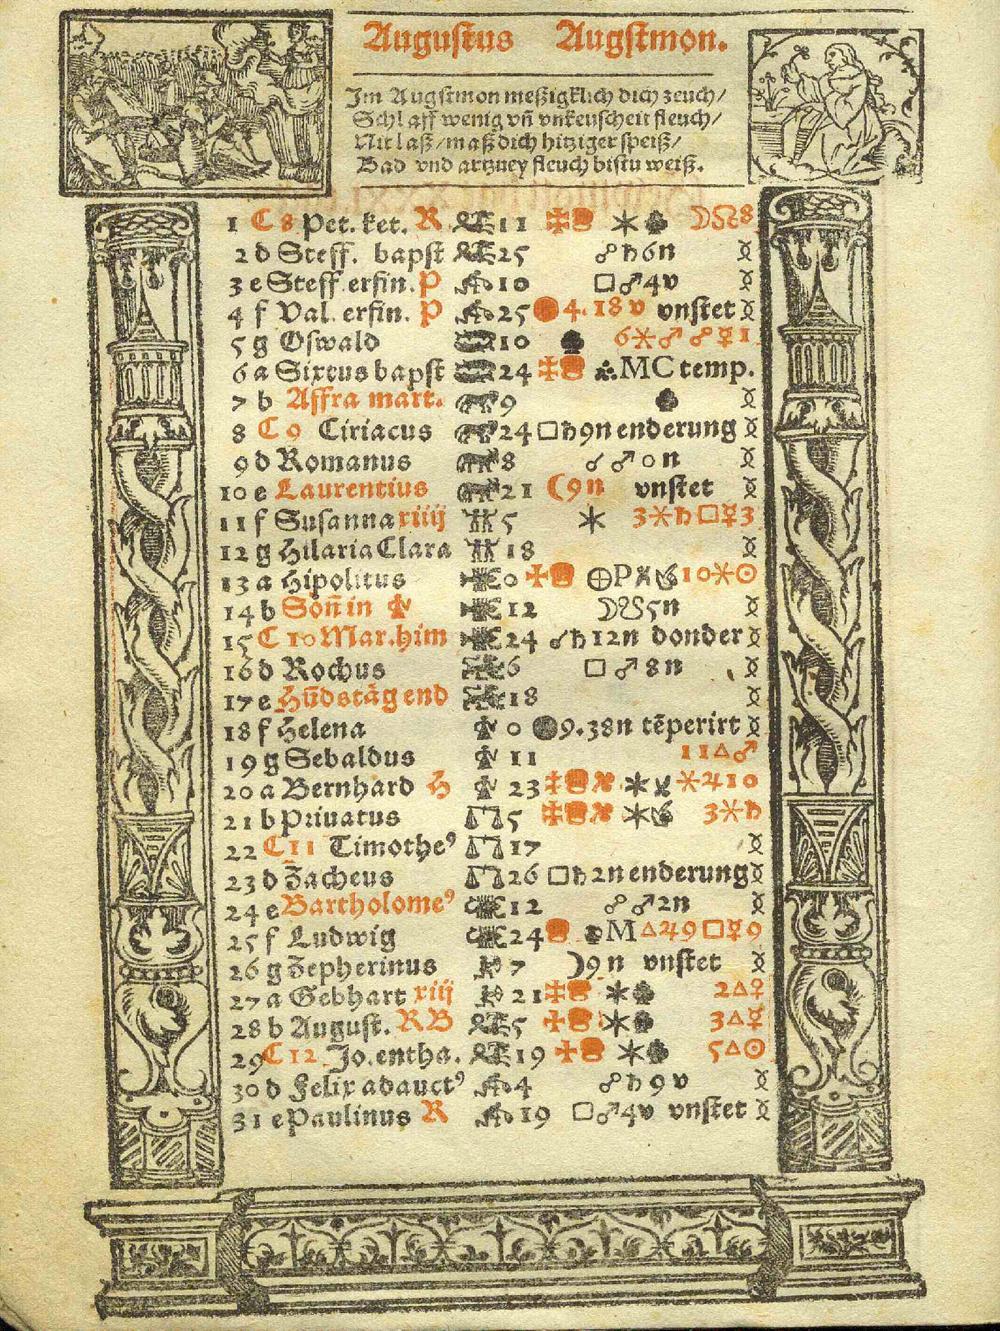 Augustus Augstmon.
Im Augstmon meßigklich dich zeuch/
Schlaff wenig vñ vnkeuscheit fleuch/
Nit laß/maß dich hitziger speiß/
Bad vnd artzney fleuch bistu weiß.
1 C 8 Pet. ket. R ♉11 ☽☊8
2 d Steff. bapst ♉25 ☍♄6n
3 e Steff. erfin. P 10 □♂4v
4 f Val. erfin. P 25 4.18 v vnstet
5 g Oswald 10 6⚹♂☍☿1
6 a Sixtus bapst 24 MC temp.
7 b Affra mart. 9
8 C 9 Ciriacus 24 □♄9n enderung
9 d Romanus 8 ☌♂0n
10 e Laurentius 21 9n vnstet
11 f Susanna xiiij 5 3⚹♄□☿3
12 g Hilaria Clara 18
13 a Hipolitus 0 ⊕P 10⚹☉
14 b Soñ in ♍ 12 ☽☋5n
15 C 10 Mar. him 24 ☌♄12n donder
16 d Rochus 6 □♂8n
17 e Hũdstãg end 18
18 f Helena 0 9.38n tẽperirt
19 g Sebaldus 11 11△♂
20 a Bernhard H 23 ⚹♃10
21 b Priuatus 5 3⚹♄
22 C 11 Timotheꝰ 17
23 d Zacheus 26 □♄2n enderung
24 e Bartholomeꝰ 12 ☍♂2n
25 f Ludwig 24 M△♃9□☿9
26 g Zepherinus 7 9n vnstet
27 a Gebhart xiij 21 2△♀
28 b August. RB 5 3△☿
29 C 12 Jo. entha. 19 5△☉
30 d Felix adauctꝰ 4 ☍♄9v
31 e Paulinus R 19 □♂4v vnstet